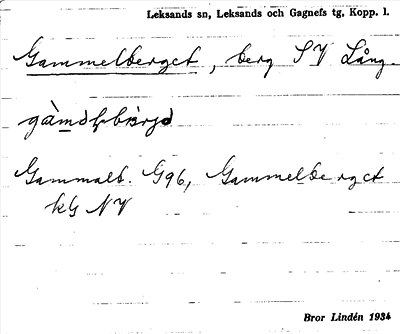 Leksands sn, Leksands och Gagnefs tg, Kopp. l.
Gammelberget, berg SV Lång.
Gammalb. G96, Gammelberget
kG NV
Bror Lindén 1934